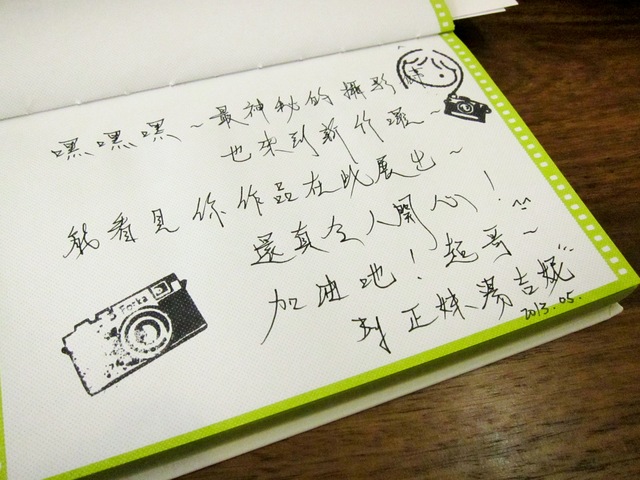 嘿嘿嘿~最神秘的攝影
也來到新竹囉~
能看見你作品在此展出~
還真令人開心！^^
加油地！超哥~
正妹湯吉妮
2013.05.
Forka